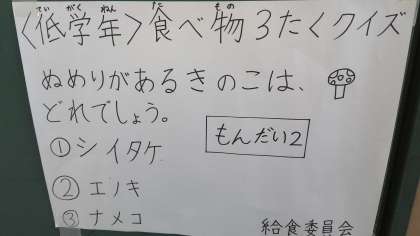 〈低学年〉食べ物3たくクイズ
ていがくねん た もの
ぬめりがあるきのこは、
どれでしょう。
①シイタケ
もんだい2
②エノキ
③ナメコ
給食委員会